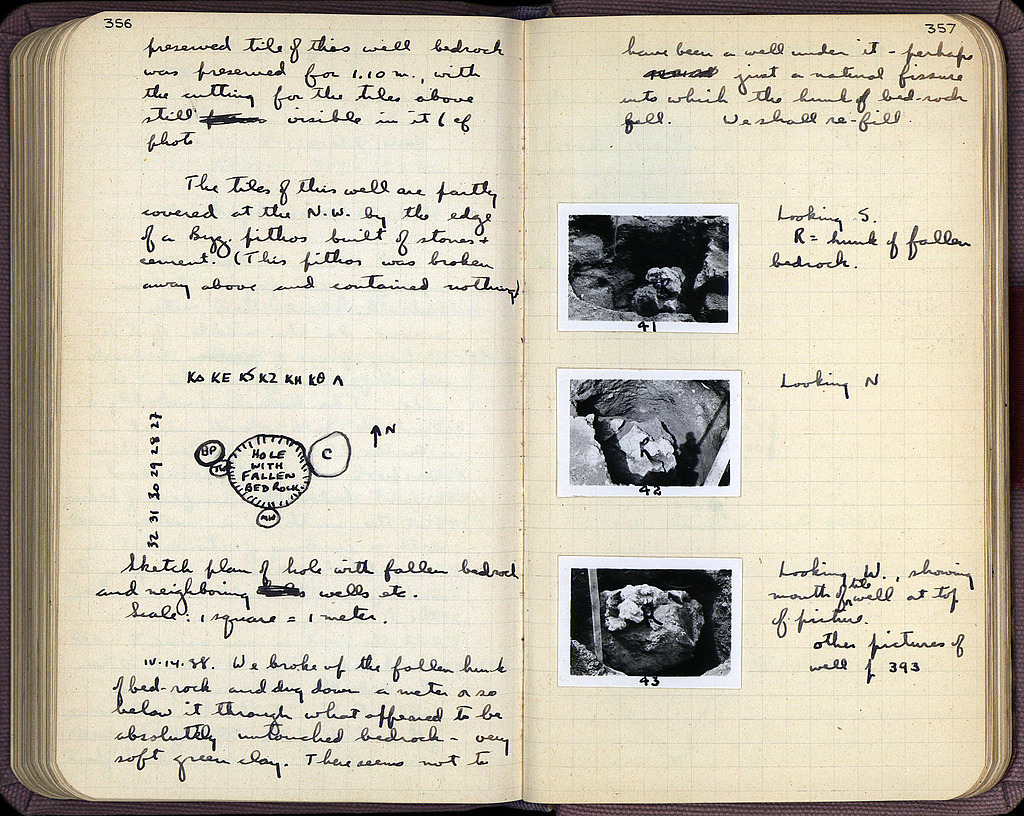 356
preserved tile of this well bedrock
was preserved for 1.10 m., with
the cutting for the tiles above
still visible in it (cf
photo
The tiles of this well are partly
covered at the N.W. by the edge
of a Byz. pithos built of stones +
cement. (This pithos was broken
away above and contained nothing)
ΚΔ ΚΕ ΚS ΚΖ ΚΗ ΚΘ Λ
27
28
29
30
31
32
BP
TW
HOLE
WITH
FALLEN
BEDROCK
C
MW
N
Sketch plan of hole with fallen bedrock
and neighboring wells etc.
Scale: 1 square = 1 meter.
IV.14.38. We broke up the fallen hunk
of bed-rock and dug down a meter or so
below it through what appeared to be
absolutely untouched bedrock - very
soft green clay. There seems not to
357
have been a well under it - perhaps
just a natural fissure
into which the hunk of bed-rock
fell. We shall re-fill.
Looking S.
R = hunk of fallen
bedrock.
41
Looking N
42
Looking W., showing
mouth of tile well at top
of picture.
other pictures of
well p 393
43